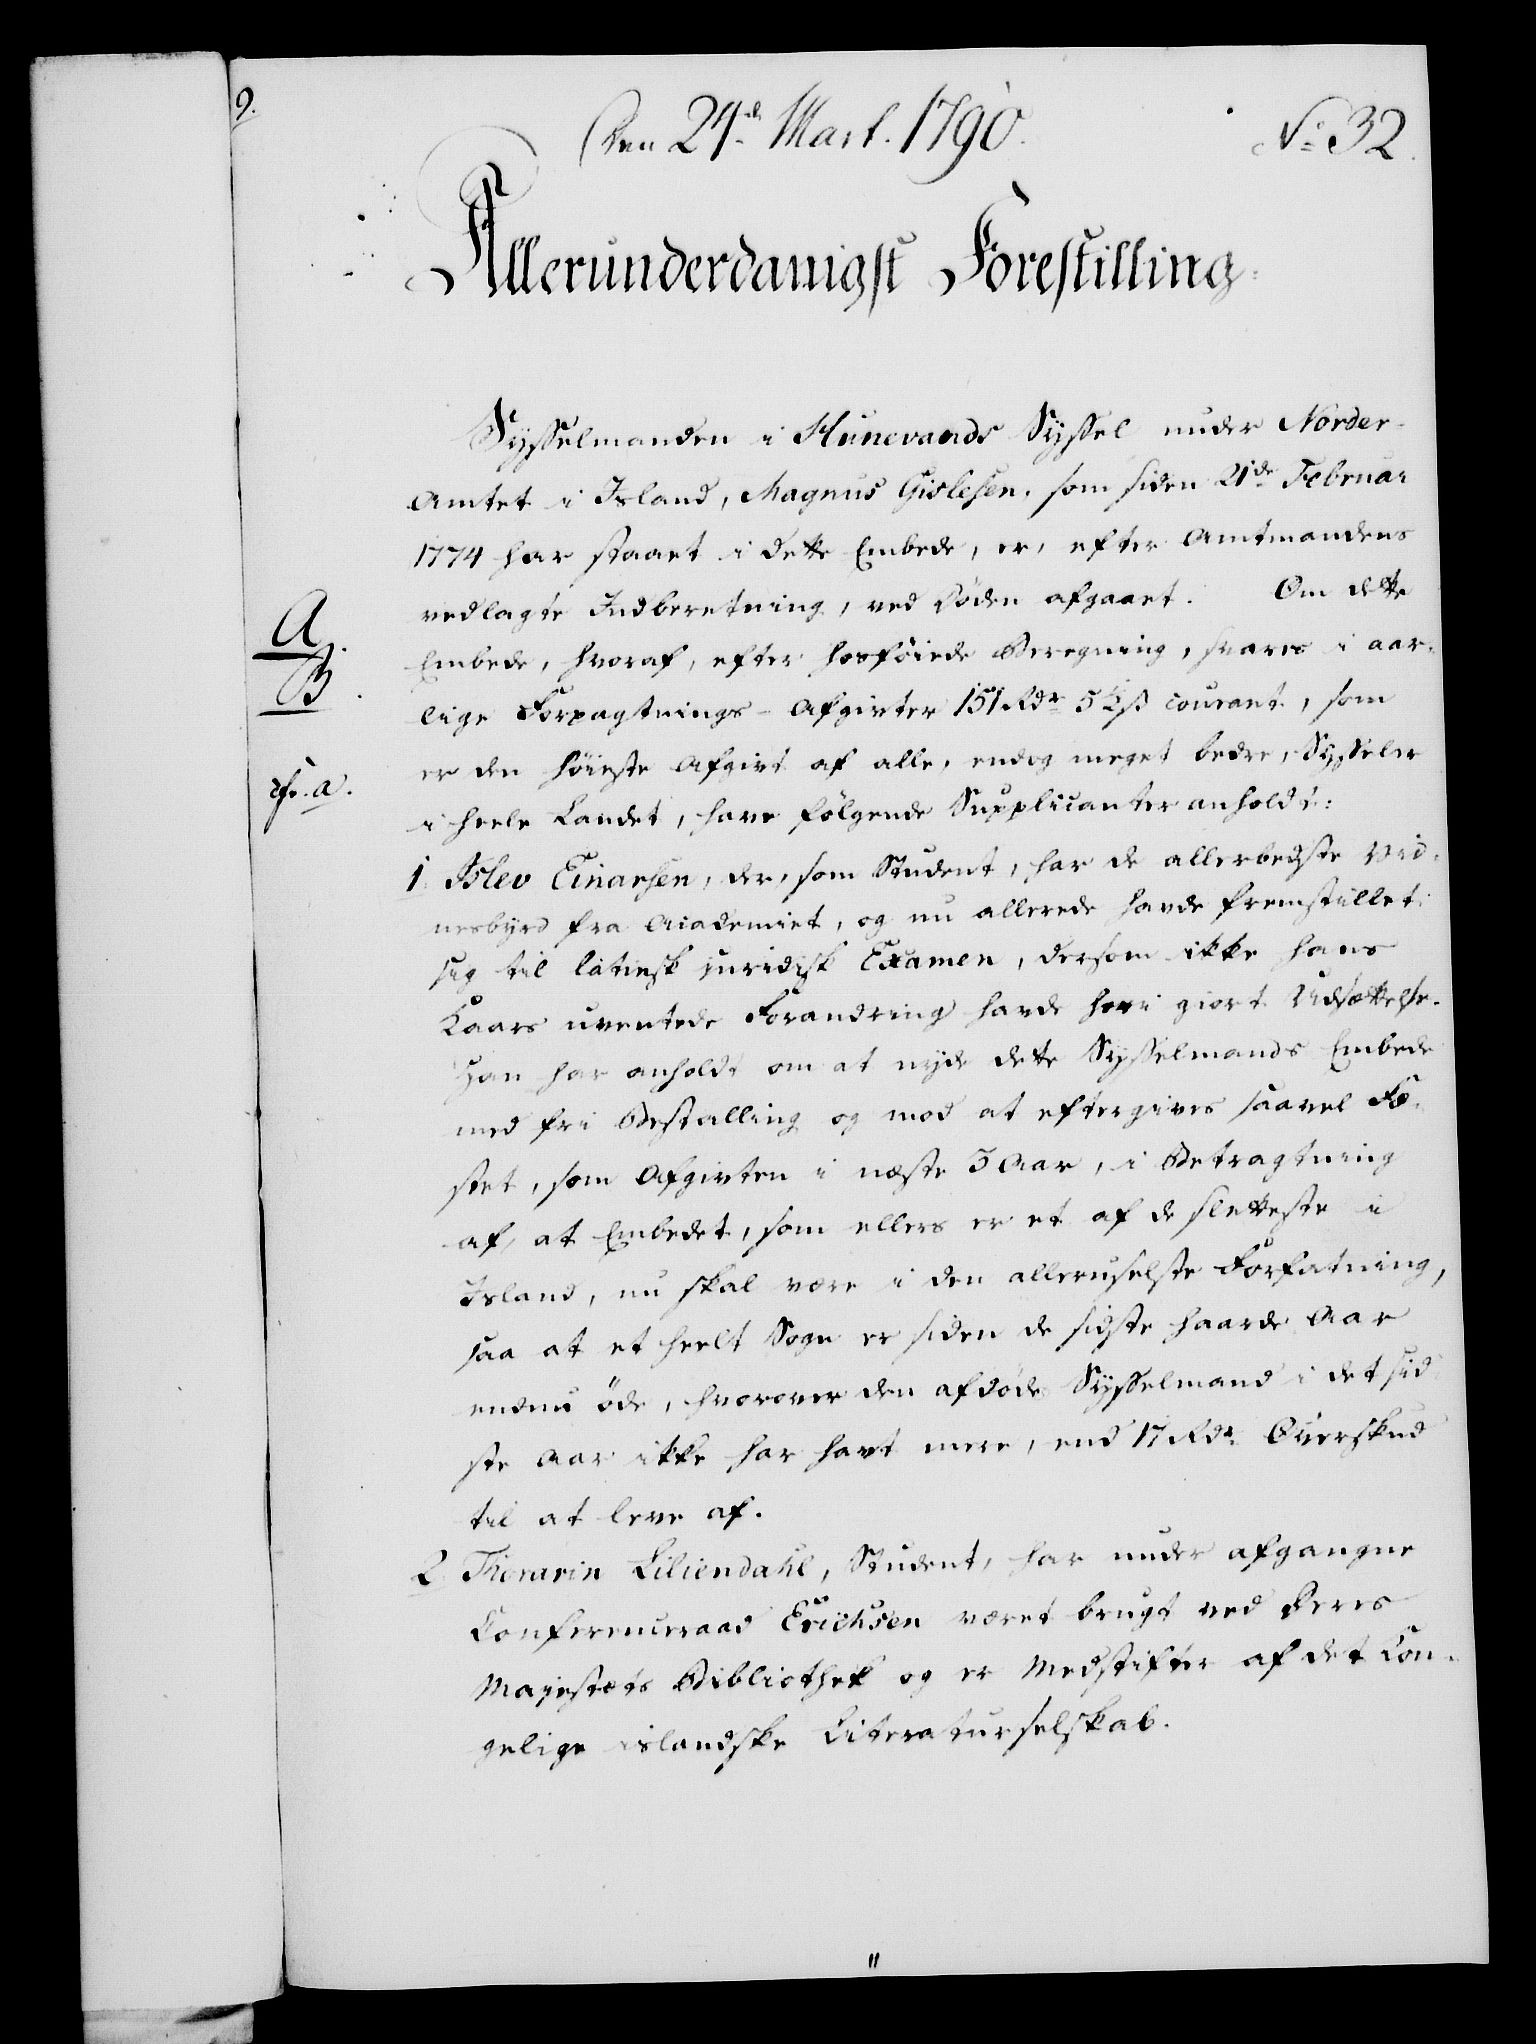 9.
Den 24de Mart. 1790.
No 32.
Allerunderdanigst Forestilling.
Sysselmanden i Hunevands Syssel under Norder-
Amtet i Island, Magnus Gislesen, som siden 21de Februar
1774 har staaet i dette Embede, er, efter Amtmandens
A
vedlagte Indberetning, ved Døden afgaaet. Om dette
B.
Embede, hvoraf, efter hosføiede Beregning, svares i aar-
lige Forpagtnings-Afgivter 151 Rdr 5 ½ ß courant, som
cfr. a.
er den høieste Afgivt af alle, endog meget bedre, Sysseler
i heele Landet, have følgende Supplicanter anholdt:
1. Islev Einarsen, der, som Student, har de allerbedste Vid-
nesbyrd fra Academiet, og nu allerede havde fremstillet
sig til latinsk juridisk Examen, dersom ikke hans
Kaars uventede Forandring havde heri giort Udsættelse.
Han har anholdt om at nyde dette Sysselmands Embede
med fri Bestalling og mod at eftergives saavel Fæ-
stet, som Afgivten i næste 3 Aar, i Betragtning
af, at Embedet, som ellers er et af de sletteste i
Island, nu skal være i den alleruselste Forfatning,
saa at et heelt Sogn er siden de sidste haarde Aar
endnu øde, hvorover den afdøde Sysselmand i det sid-
ste Aar ikke har havt mere, end 17 Rdr Overskud
til at leve af.
2. Thorarin Liliendahl, Student, har under afgangne
Conferenceraad Erichsen været brugt ved Deres
Majestæts Bibliothek og er Medstifter af det Kon-
gelige islandske Literaturselskab.